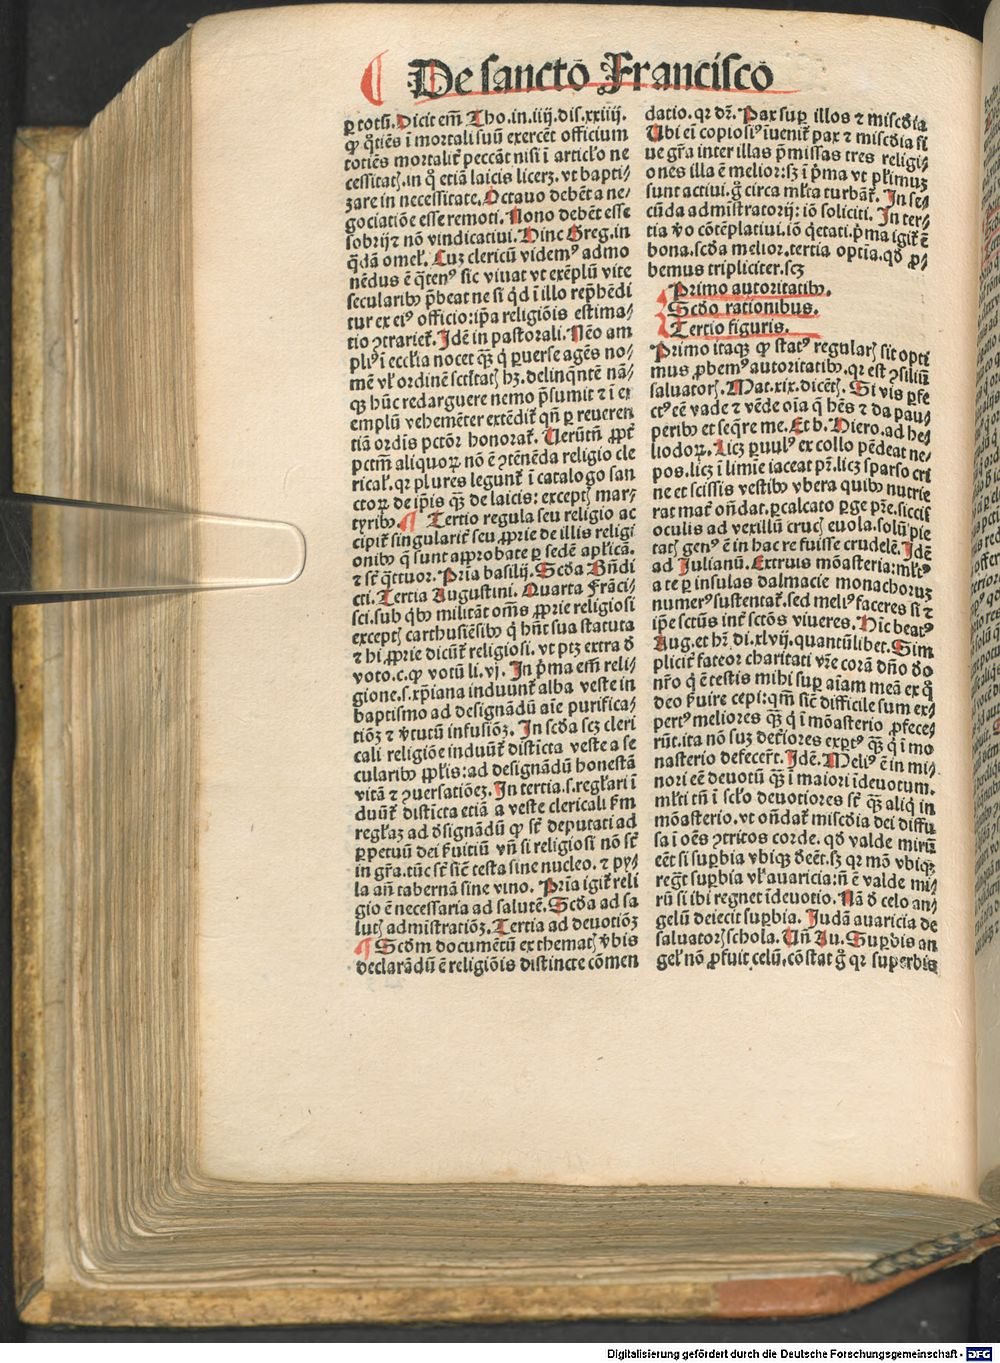 De sancto Francisco
ꝑ totū. Dicit em̄ Tho. in .iiij. dis. xxiiij.
ꝙ q̊tiēs ī mortali suū exercēt officium
totiēs mortalit̃ peccāt nisi ī articĺo ne
cessitatꝭ. in q̊ etiā laicis liceꝫ. vt bapti⸗
zare in necessitate. Octauo debēt a ne⸗
gociatiōe esse remoti. Nono debēt esse
sobrij ⁊ nō vindicatiui. Hinc Greg. in
q̇dā omeĺ. Cuꝫ clericū videmꝰ admo
nēdus ē q̄tenꝰ sic viuat vt exēplū vite
secularibꝰ p̄beat ne si q̇d ī illo rep̄hēdi
tur ex eiꝰ officio: ip̄a religiōis estima⸗
tio ꝯtrariet̃. Idē in pastorali. Nēo am
pliꝰ ī eccĺia nocet q̄ꝫ q̇ ꝑuerse agēs no⸗
mē vĺ ordinē sctĩtatꝭ hꝫ. delinq̄ntē nā⸗
qꝫ hūc redarguere nemo p̄sumit ⁊ ī ex
emplū vehemēter extēdit̃ qn̄ ꝑ reueren
tiā ordīs pctōr honorat̃. Uerūtn̄ ꝓpt̃
pctm̄ aliquoꝝ nō ē ꝯtēnēda religio cle
ricaĺ. qꝛ plures legunt̃ ī catalogo san
ctoꝝ de ip̄is q̄ꝫ de laicis: exceptꝭ mar⸗
tyribꝰ. ¶ Tertio regula seu religio ac
cipit̃ singularit̃ seu ꝓprie de illis religi
onibꝰ q̄ sunt approbate ꝑ sedē apĺicā.
⁊ st̃ q̄ttuor. Prīa basilij. Scd́a Bn̄di
cti. Tertia Augustini. Quarta Frāci⸗
sci. sub q̇bꝰ militāt om̄s ꝓprie religiosi
exceptꝭ carthusiēsibꝰ q̇ hn̄t sua statuta
⁊ hi ꝓprie dicūt̃ religiosi. vt ptꝫ extra d̓
voto. c. ꝙ votū li. vj. In p̄ma em̄ reli⸗
gione. s. xp̄iana induunt̃ alba veste in
baptismo ad designādū aīe purifica⸗
tiōꝫ ⁊ v̓tutū infusiōꝫ. In scd́a scꝫ cleri
cali religiōe induūt̃ distīcta veste a se
cularibꝰ ꝓpĺis: ad designādū honestā
vitā ⁊ ꝯuersatiōeꝫ. In tertia. s. regĺari ī
duūt̃ distīcta etiā a veste clericali ẜm
regĺaꝫ ad d̓signādū ꝙ st̃ deputati ad
ꝑpetuū dei ẜuitiū vn̄ si religiosi nō st̃
in gr̄a. tūc st̃ sic̄ testa sine nucleo. ⁊ py⸗
la an̄ tabernā sine vino. Prīa igit̃ reli
gio ē necessaria ad salutē. Scd́a ad sa
lutꝭ admistratiōꝫ. Tertia ad deuotiōꝫ
¶ Scd́m documētū ex thematꝭ v̓bis
declarādū ē religiōis distincte cōmen
datio. qꝛ dr̄. Pax suꝑ illos ⁊ misc̄dia
Ubi ei͂ copiosiꝰ īuenit̃ pax ⁊ misc̄dia si
ue gr̄a inter illas p̄missas tres religi⸗
ones illa ē melior: sꝫ ī p̄ma vt pĺimuꝫ
sunt actiui. g̊ circa mĺta turbāt̃. In se⸗
cūda admistratorij: iō soliciti. In ter⸗
tia v̓o cōtēplatiui. iō q̇etati. p̄ma igit̃ ē
bona. scd́a melior. tertia optīa. qd̓ ꝓ⸗
bemus tripliciter. scꝫ
Primo autoritatibꝰ.
Scd́o rationibus.
Tertio figuris.
Primo itaqꝫ ꝙ statꝰ regularꝭ sit opti
mus ꝓbemꝰ autoritatibꝰ. qꝛ est ꝯsiliū
saluatorꝭ. Mat. xix. dicētꝭ. Si vis ꝑfe
ctꝰ eē vade ⁊ vēde oīa q̄ hēs ⁊ da pau⸗
peribꝰ et seq̄re me. Et b. Hiero. ad he⸗
liodoꝝ. Licꝫ ꝑuulꝰ ex collo pēdeat ne⸗
pos. licꝫ ī limīe iaceat pr̄. licꝫ sparso cri
ne et scissis vestibꝰ vbera quibꝰ nutrie
rat mat̃ on̄dat. ꝑcalcato ꝑge pr̄e. siccis
oculis ad vexillū crucꝭ euola. solū pie
tatꝭ genꝰ ē in hac re fuisse crudelē. Idē
ad Julianū. Extruis mōasteria: mĺtꝰ
a te ꝑ insulas dalmacie monachoruꝫ
numerꝰ sustentat̃. sed meliꝰ faceres si ⁊
ip̄e sctūs int̃ sctōs viueres. Hic beatꝰ
Aug. et hr̄ di. xlvij. quantūlibet. Sim
plicit̃ fateor charitati vr̄e corā dn̄o d̓o
nr̄o q̇ ē testis mihi suꝑ aīam meā ex q̊
deo ẜuire cepi: qm̄ sic̄ difficile sum ex⸗
pertꝰ meliores q̄ꝫ q̇ ī mōasterio ꝓfece⸗
rūt. ita nō suꝫ det̓iores exptꝰ q̄ꝫ q̇ ī mo
nasterio defecer̄t. Idē. Meliꝰ ē in mi⸗
nori eē deuotū q̄ꝫ ī maiori īdeuotum.
mĺti tn̄ ī scĺo deuotiores st̃ q̄ꝫ aliq̇ in
mōasterio. vt on̄dat̃ misc̄dia dei diffu
sa ī oēs ꝯtritos corde. qd̓ valde mirū
eēt si suꝑbia vbiqꝫ d̓eēt. sꝫ qꝛ mō vbiqꝫ
regt̃ suꝑbia vĺ auaricia: n̄ ē valde mi⸗
rū si ibi regnet īdeuotio. Nā d̓ celo an⸗
gelū deiecit suꝑbia. Judā auaricia de
saluatorꝭ schola. Un̄ Au. Suꝑbis an
geĺ nō ꝓfuit celū. cōstat g̊ qꝛ superbis
Digitalisierung gefördert durch die Deutsche Forschungsgemeinschaft - DFG